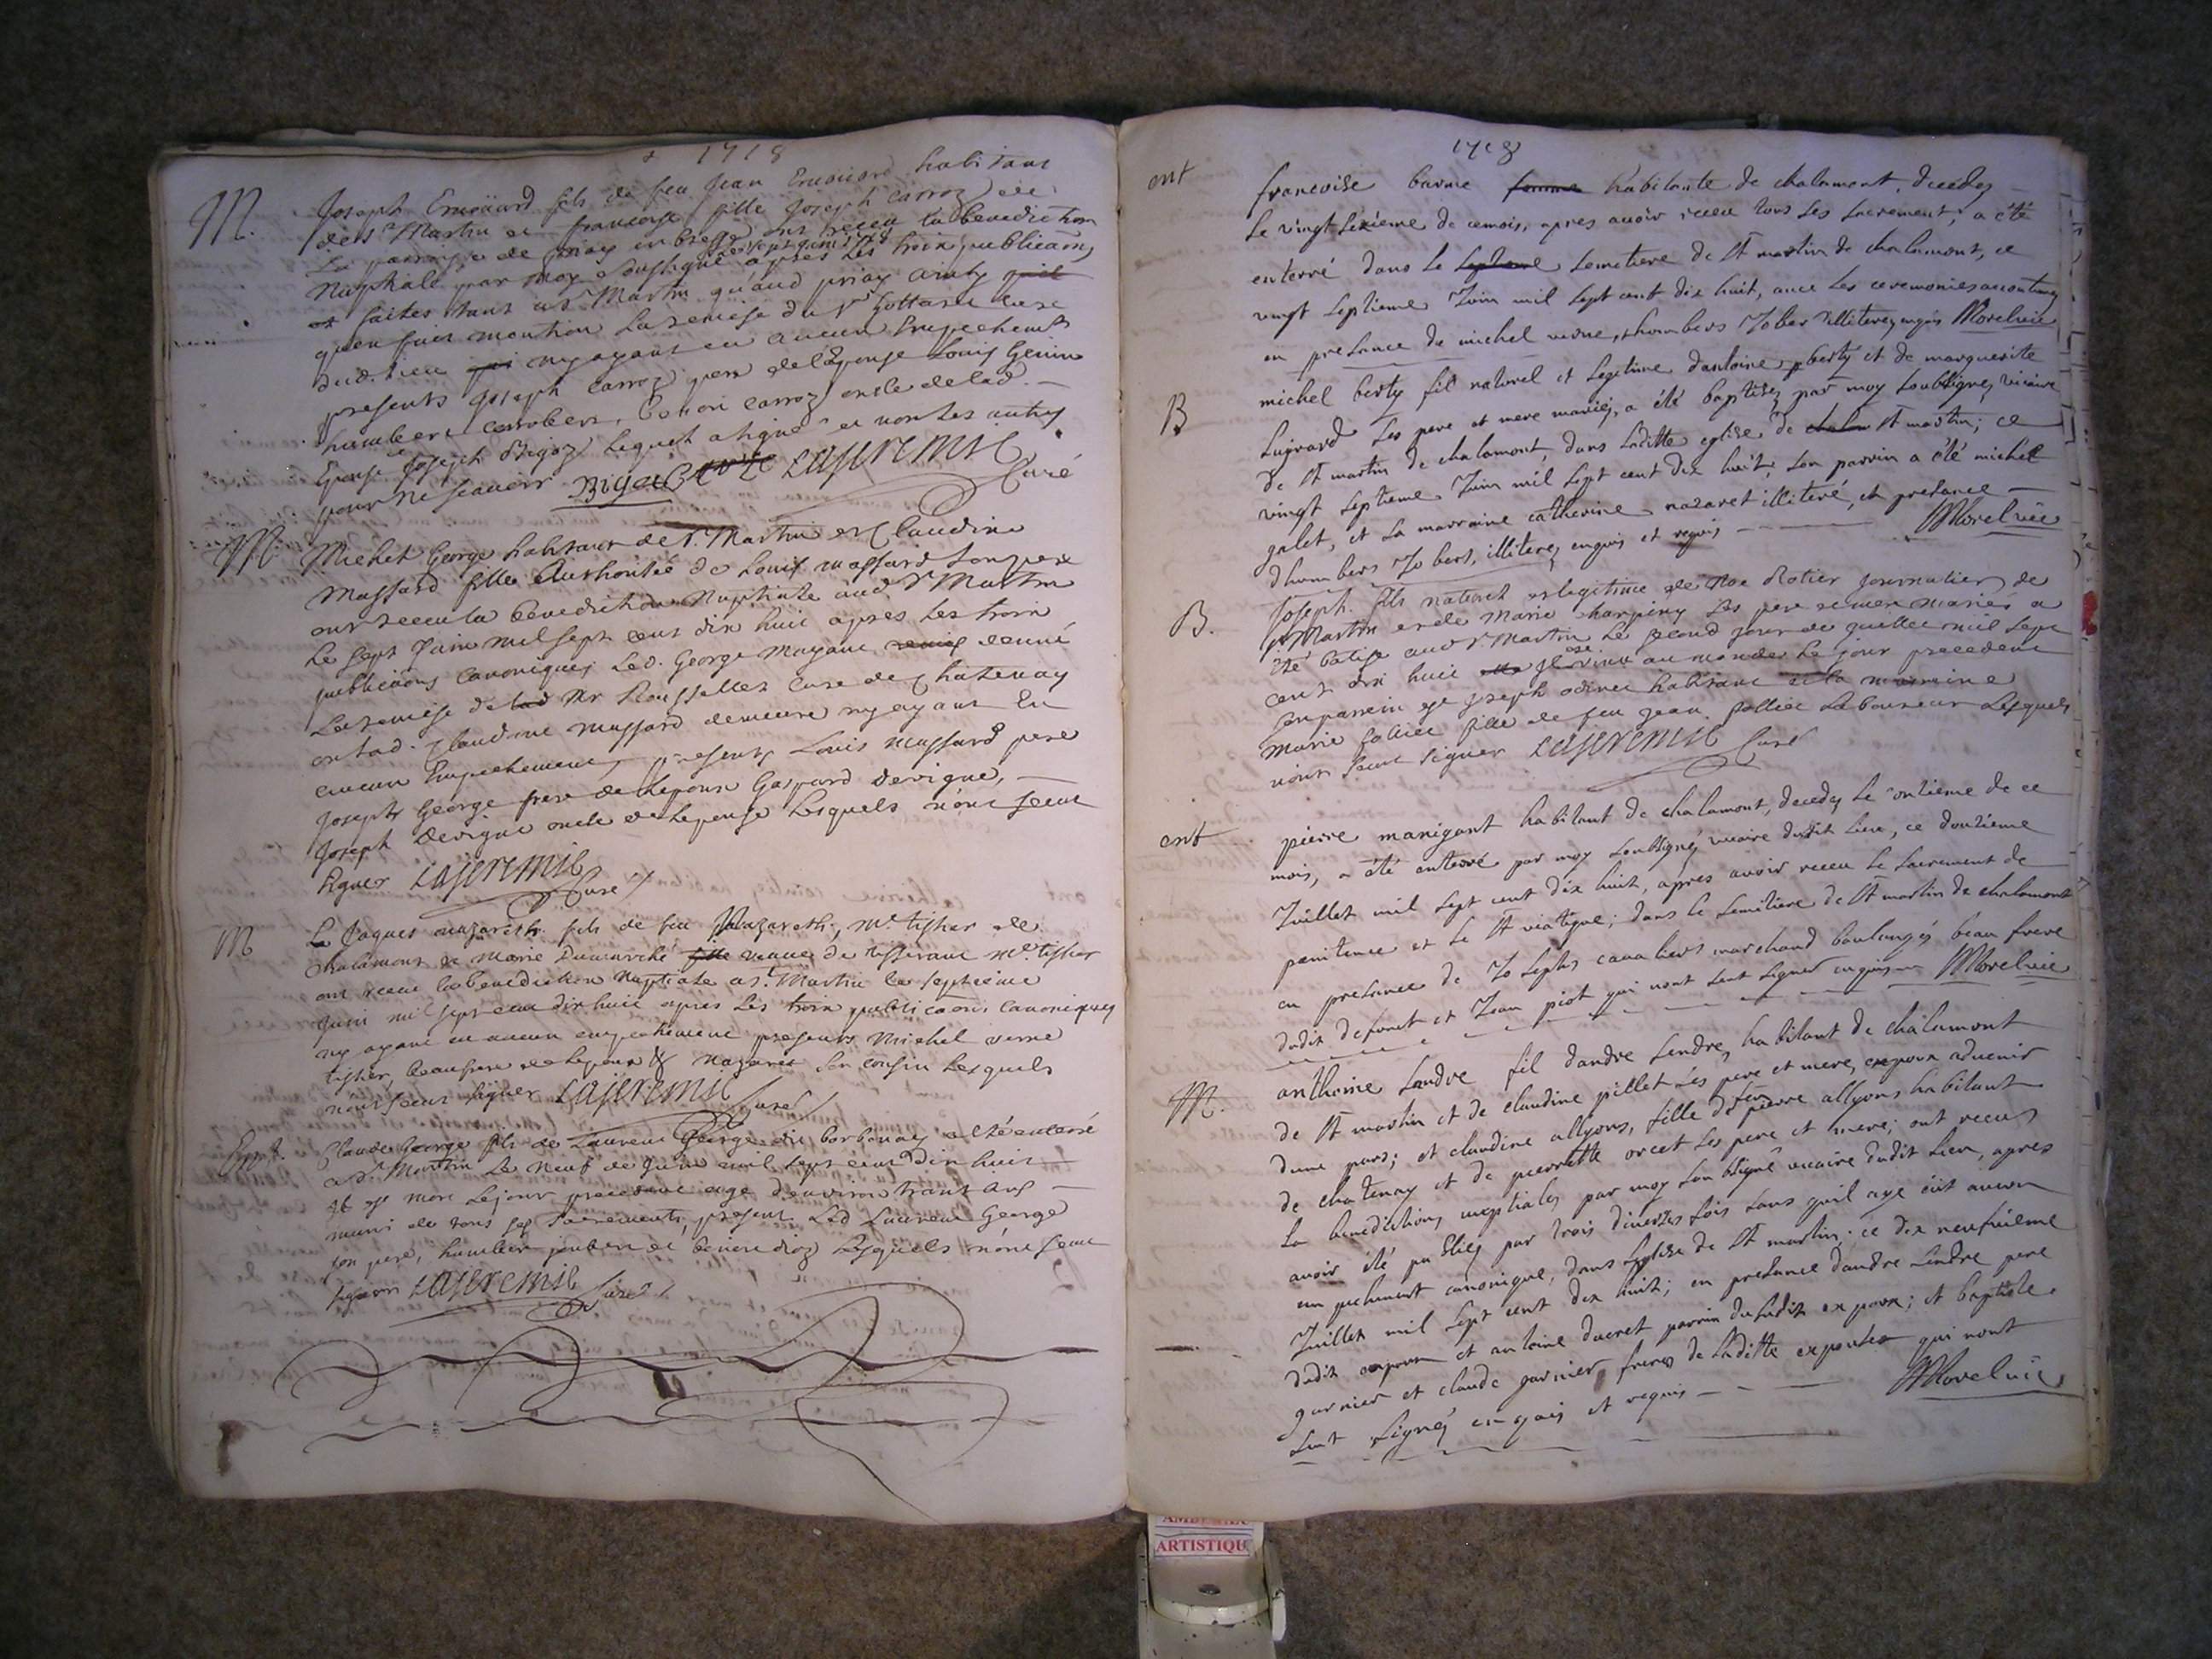 1718
M. Joseph fils de feu Jean habitant
de St Martin et francoise fille Joseph Carroz de
la parroisse de priay ont receu la benediction
nuptiale par moy soussigné apres les trois publicaons
faites tant a St Martin quaud priay
qu'en fait mention la remise du Sr Gottard cure
dud. lieu ny ayant eu aucun Empechement
presents Joseph Carroz pere de lEpouse Louis Genin
humbert Carroz oncle de lad.
Epouse Joseph Bigoz lequel a signé et non les autres
pour ne scavoir Lajeremie Curé
M. Michel George habitant de St. Martin et Claudine
Massard fille Authorisée de Louis massard son pere
ont receu la benediction Nuptiale aud. St Martin
le sept Juin mil sept cent dix huit apres les trois
publicaons canoniques led. George mayant donné
la remise de Mr Rousselles Cure de Chatenay
ou lad. Claudine massard demeure ny ayant Eu
aucun Empechement, presents Louis massard pere
Joseph George frere de lepoux Gaspard Devigne,
Joseph Devigne oncle de lepouse lesquels n'ont sceut
signer Lajeremie Curé
M Jaques nazareth fils de feu Nazareth, Me. tissier de
Chalamont et Marie veuve de Me. tissier
ont receu la benediction Nuptiale a St. Martin le septieme
Juin mil sept cent dix huit apres les trois publicaons canoniques
ny ayant eu aucun empechement presents Michel verne
tissier, beaufrere de lepoux & Nazaret son cousin lesquels
n'ont sceut signer Lajeremie Curé
Claude George fils de Laurent George dit barbonay a eté enterré
a St. Martin le neuf de Juin mil sept cent dix huit
Il est mort le jour precedent agé d'environ trante ans
muni de tous ses Sacrements, present led Laurent George
son pere, humbert joubert et lesquels n'ont sceut
signer Lajeremie Curé
1718
ent francoise barme habitante de chalamont, decedez
le vingt sixieme de cemois, apres avoir receu tous les sacrement; a été
enterré dans le semetiere de St martin de chalamont, ce
vingt septieme Juin mil sept cent dix huit, avec les ceremonies
en presance de michel verne, dhumbers Jobers illiterez enquis Morel vic
B michel berty fil naturel et legitime dantoine berty et de marguerite
sugrard ses pere et mere mariés, a été baptisez par moy soubsignez vicaire
de St martin de chalamont, dans laditte eglise de St martin; ce
vingt septieme Juin mil sept cent dix huit; son parrin a été michel
galet, et sa marraine catherine nazaret illiteré, en presance
dhumbers Jobers, illiterez enquis et requis Morel vic
B. Joseph. fils naturel et legitime de Noe Rotier journalier de
St Martin et de Marie charpiny ses pere et mere mariés a
été batisé aud St. Martin le second jour de Juillet mil sept
cent dix huit Il vint au monde le jour precedent
son parrein est joseph odinet habitant et la marreine
Marie folliet fille de feu Jean folliet Laboureur Lesquels
n'ont sceut signer Lajeremie Curé
ent pierre manigant habitant de chalamont, decedez le ontieme de ce
mois, a été enterré par moy soubsigné vicaire dudit lieu, ce doutieme
Juillet mil sept cent dix huit, apres avoir receu le sacrement de
penitence et le St viatique; dans le semetiere de St martin de chalamont
en presance de Josephs cavaliers marchand boulangés beau frere
dudit defunt et Jean piot qui nont seut signer enquis Morel vic
M. anthoine sandre fil dandre sendre, habitant de chalamont
de St martin et de claudine pillet ses pere et mere, expoux advenir
dune pard; et claudine allyons, fille de feu pierre allyons habitant
de chatenay et de pierrette orcet ses pere et mere; ont receus
la benediction nuptiales par moy soubsigné vicaire dudit lieu, apres
avoir été publiez par trois diverses fois sans quil aye eüt aucun
empechement canonique, dans leglise de St martin; ce dix neufvieme
Juillet mil sept cent dix huit; en presance dandre sendre pere
dudit expoux et antoine ducret parrin dudit expoux; et baptiste
garnier et claude garnier freres de laditte expouse qui nont
seut signés enquis et requis Morel vic
AMB
ARTISTIQU